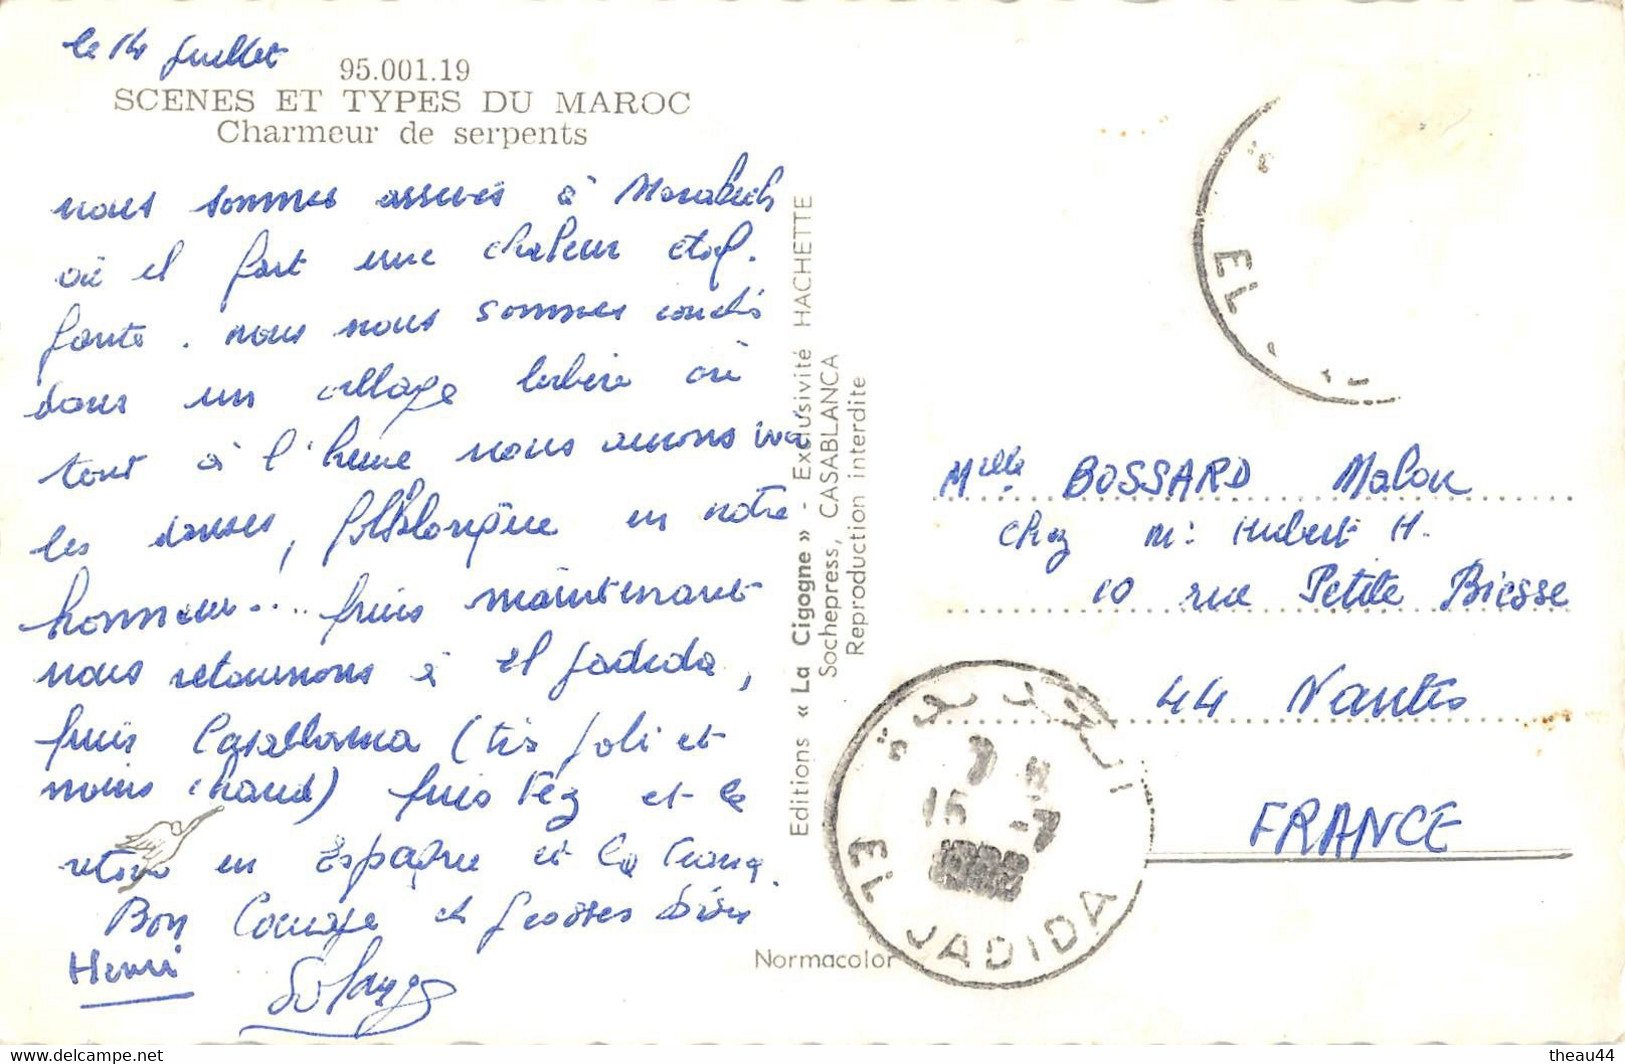 le 14 juillet
95.001.19
SCENES ET TYPES DU MAROC
Charmeur de serpents
nous sommes arrivés à Marakech
où il fait une chaleur étouf-
fante. nous nous sommes
dans un village berbère où
tout à l'heure nous aurons
les danses, folklorique en notre
honneur... puis maintenant
nous retournons à El Jadida,
puis Casablanca (très joli et
moins chaud) puis Fez et le
retour en Espagne et la
Bon Courage et grosses bises
Henri
Solange
Editions « La Cigogne » - Exclusivité HACHETTE
Sochepress, CASABLANCA
Reproduction interdite
Normacolor
EL
Melle BOSSARD Malou
chez M. Hubert H.
10 rue Petite Biesse
44 Nantes
FRANCE
الجديدة
15 -7
EL JADIDA
https://www.delcampe.net
theau44